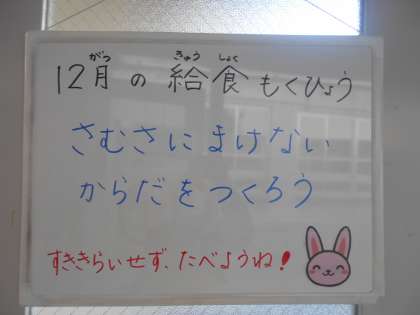 12月の給食もくひょう
がつ きゅう しょく
さむさにまけない
からだをつくろう
すききらいせず、たべようね!